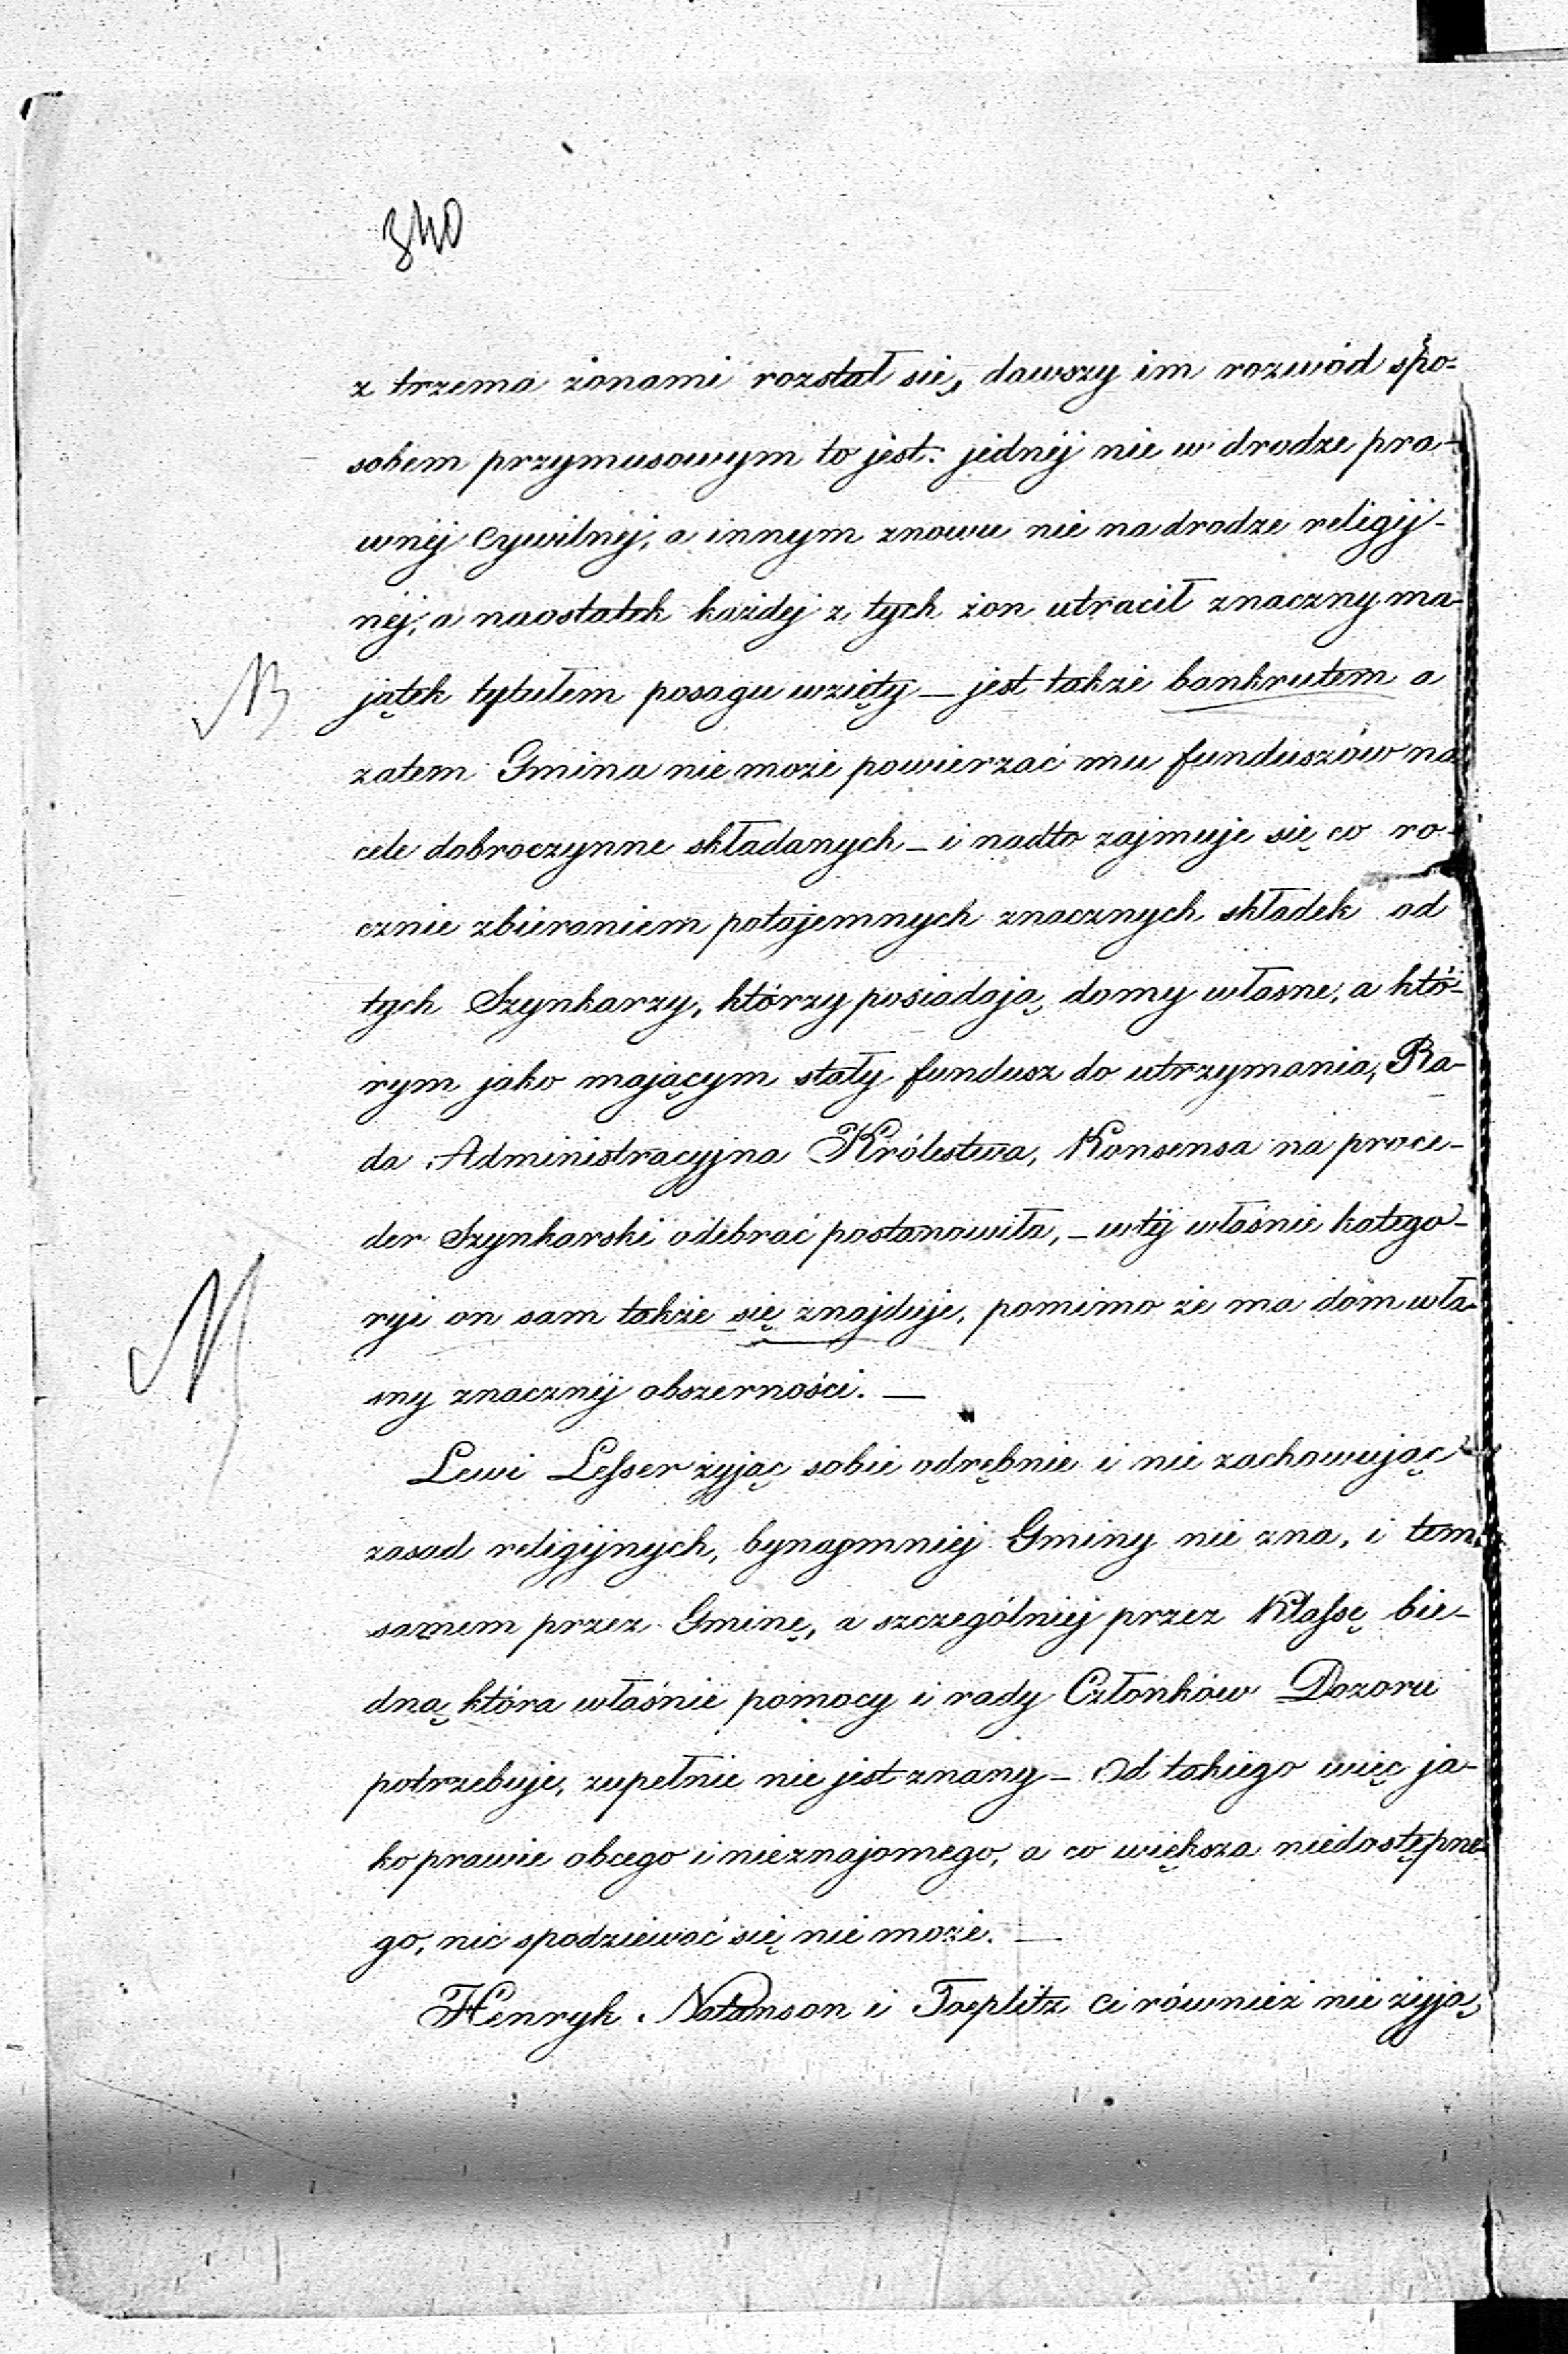 340
z trzema żonami rozstał się, dawszy im rozwód spo-
sobem przymusowym to jest: jednéj nie w drodze pra-
wnéj Cywilnéj, a innym znowu nie na drodze religij-
néj, a naostatek każdej z tych żon utracił znaczny ma-
NB jątek tytułem posagu wzięty – jest także bankrutem a
zatem Gmina nie może powierzać mu funduszów na
cele dobroczynne składanych – i nadto zajmuje się co ro-
cznie zbieraniem potajemnych znacznych składek od
tych Szynkarzy, którzy posiadają domy własne, a któ-
rym jako mającym stały fundusz do utrzymania, Ra-
da Administracyjna Królestwa, Konsensa na proce-
der Szynkarski odebrać postanowiła, – w téj właśnie katego-
ryi on sam także się znajduje, pomimo że ma dom wła-
sny znacznéj obszerności. —
Lewi Lesser żyjąc sobie odrębnie i nie zachowując
zasad religijnych, bynajmniej Gminy nie zna, i tem
samem przez Gminę, a szczególniej przez Klassę bie-
dną która właśnie pomocy i rady Członków Dozoru
potrzebuje, zupełnie nie jest znany – Od takiego więc ja-
ko prawie obcego i nieznajomego, a co większa niedostępne-
go, nic spodziewać się nie może. —
Henryk Natanson i Toeplitz ci również nie żyją